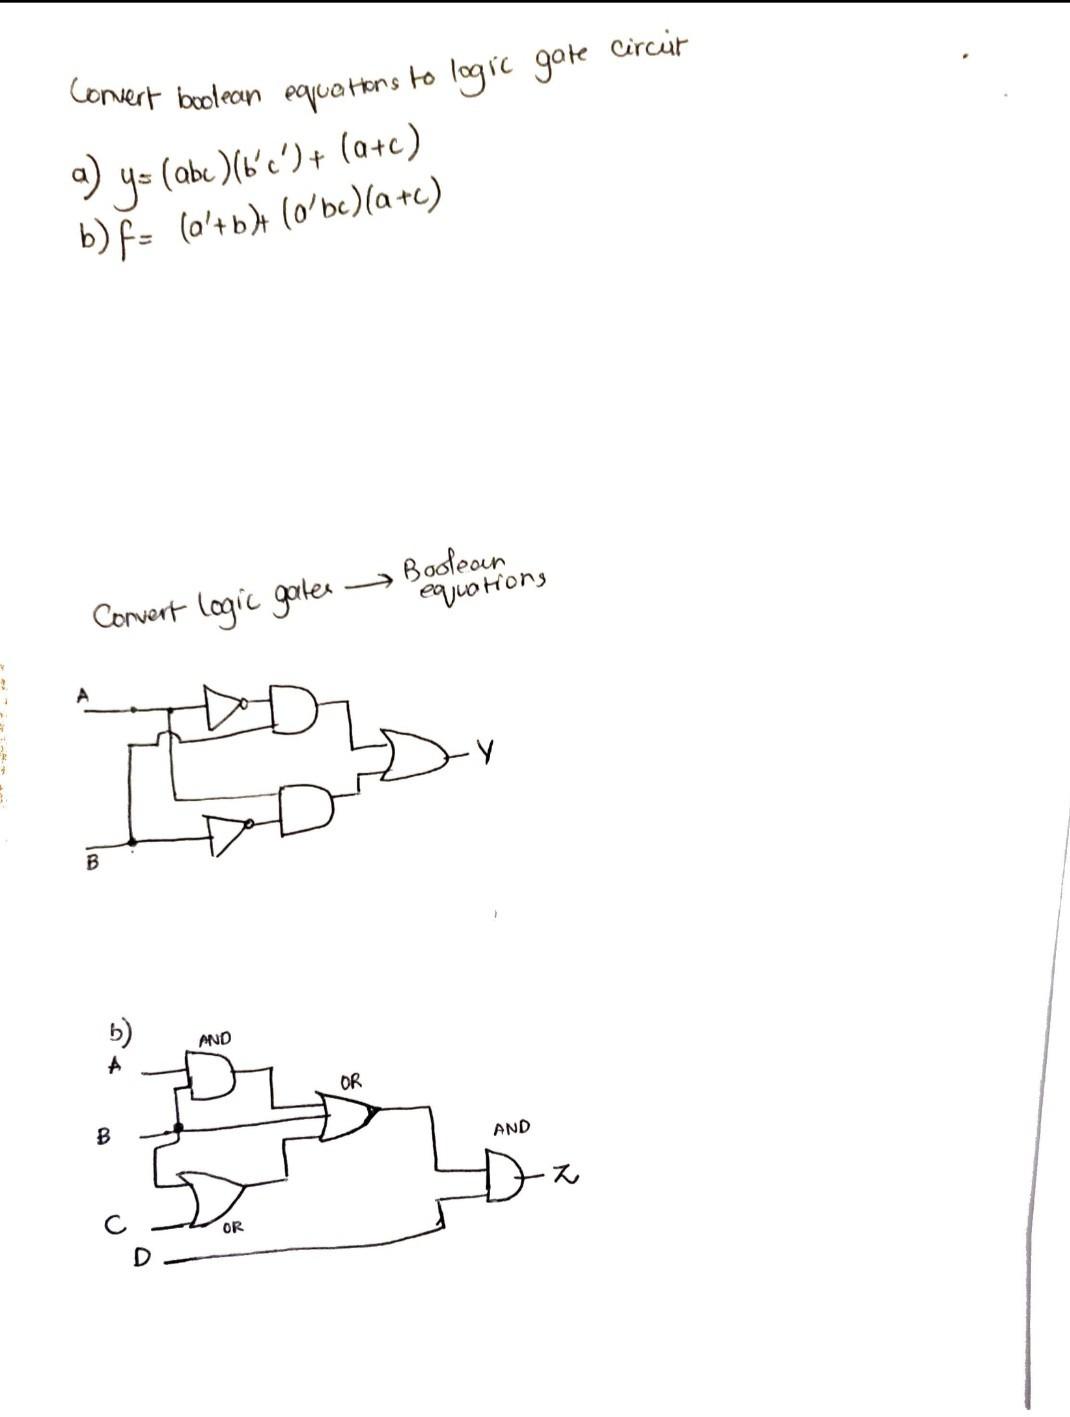 Convert boolean equations to logic gate circuit
a) y= (abc)(b'c') + (a+c)
b) f= (a'+b)+ (a'bc)(a+c)
Convert logic gates → Boolean
equations
A
Y
B
b)
AND
A
OR
B
AND
Z
C
OR
D